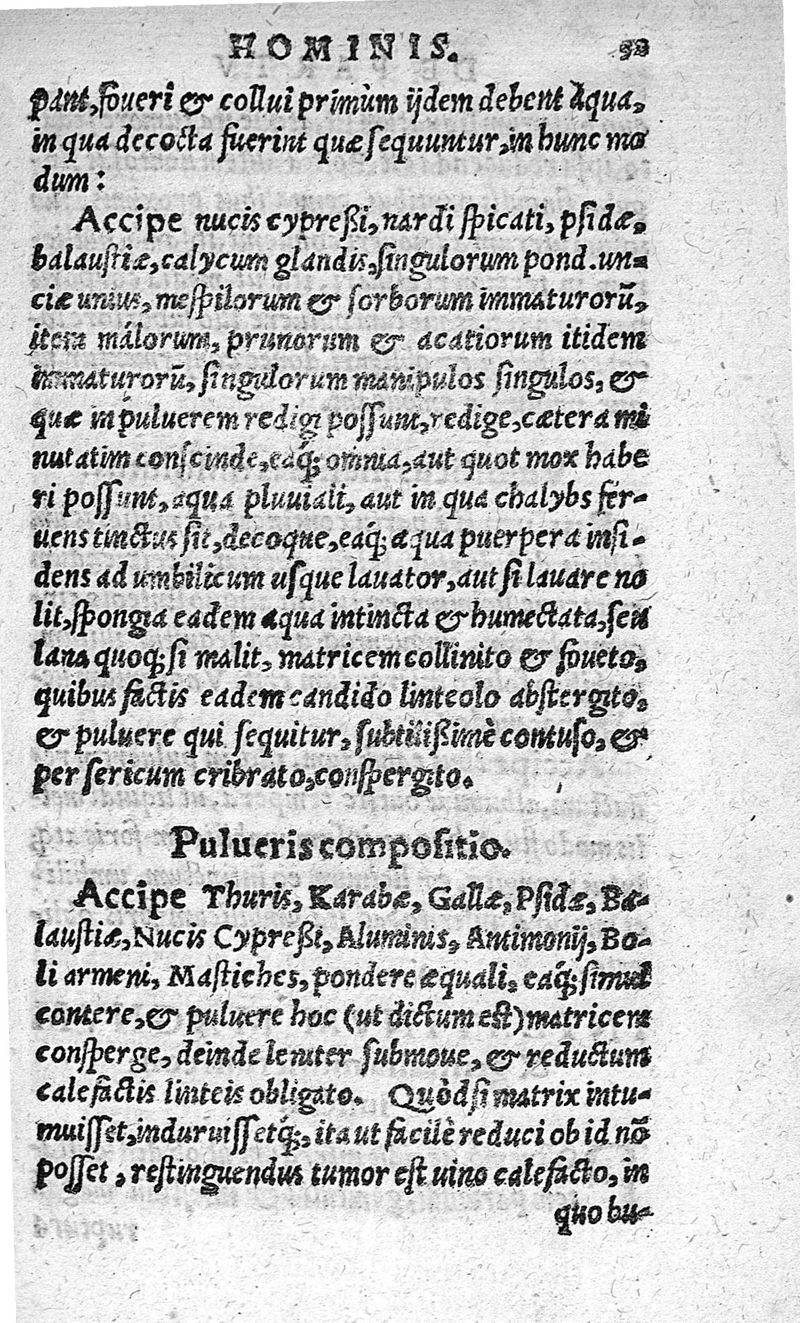 HOMINIS.
pant, foueri & collui primùm ijdem debent aqua,
in qua decocta fuerint quæ sequuntur, in hunc mo
dum:
Accipe nucis cypreßi, nardi spicati, psidæ,
balaustiæ, calycum glandis, singulorum pond. un-
ciæ unius, mespilorum & sorborum immaturorũ,
item málorum, prunorum & acatiorum itidem
immaturorũ, singulorum manipulos singulos, &
quæ in puluerem redigi possunt, redige, cætera mi
nutatim conscinde, eaq́; omnia, aut quot mox habe
ri possunt, aqua pluuiali, aut in qua chalybs fer-
uens tinctus sit, decoque, eaq́; aqua puerpera insi-
dens ad umbilicum usque lauator, aut si lauare no
lit, spongia eadem aqua intincta & humectata, seu
lana quoq; si malit, matricem collinito & foueto,
quibus factis eadem candido linteolo abstergito,
& puluere qui sequitur, subtilißimè contuso, &
per sericum cribrato, conspergito.
Pulueris compositio.
Accipe Thuris, Karabæ, Gallæ, Psidæ, Ba-
laustiæ, Nucis Cypreßi, Aluminis, Antimonij, Bo-
li armeni, Mastiches, pondere æquali, eaq́; simul
contere, & puluere hoc (ut dictum est) matricem
consperge, deinde leniter submoue, & reductum
calefactis linteis obligato. Quòd si matrix intu-
muisset, induruissetq́;, ita ut facilè reduci ob id nõ
posset, restinguendus tumor est uino calefacto, in
quo bu-